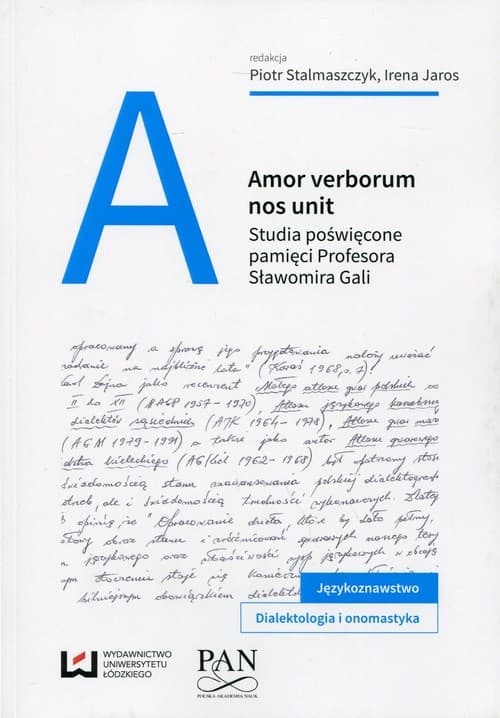 redakcja
Piotr Stalmaszczyk, Irena Jaros
A
Amor verborum
nos unit
Studia poświęcone
pamięci Profesora
Sławomira Gali
opracowany a sprawę jego przygotowania należy uważać
zadanie na najbliższe lata" (Karaś 1968, s. 7).
jako recenzent Małego atlasu gwar polskich
II do XII (MAGP 1957 – 1970), Atlasu językowego
dialektów sąsiednich (AJK 1964 – 1978), Atlasu gwar
(AGM 1979 – 1991) a także jako autor Atlasu gwarowego
kieleckiego (AGKiel 1962 – 1968) był
świadomością stanu zaawansowania polskiej dialektografii
ale i świadomością trudności wykonawczych.
opinię, że "Opracowanie dzieła, które by dało pełny,
obraz stanu i zróżnicowań gwarowych naszego
językowego oraz właściwości językowych w
staje się
obowiązkiem
Językoznawstwo
Dialektologia i onomastyka
WYDAWNICTWO
UNIWERSYTETU
ŁÓDZKIEGO
PAN
POLSKA AKADEMIA NAUK